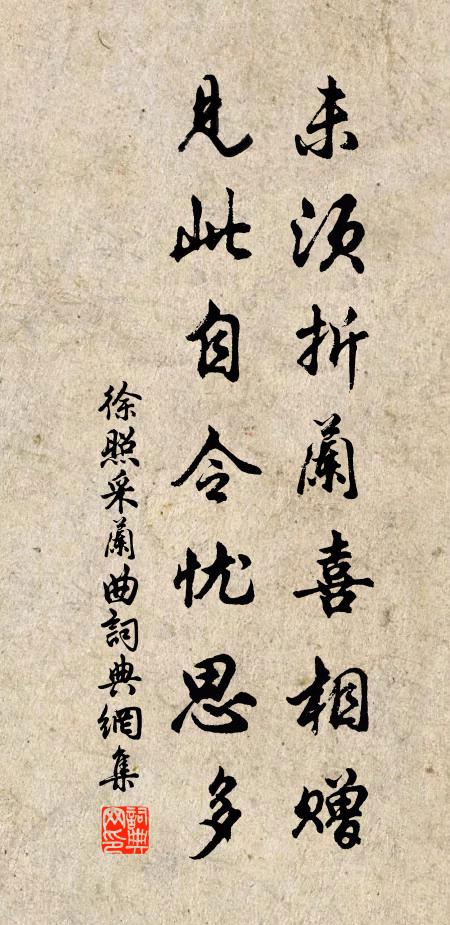 未须折蘭喜相赠
見此自令忧思多
徐照采蘭曲詞典網集
詞典网印